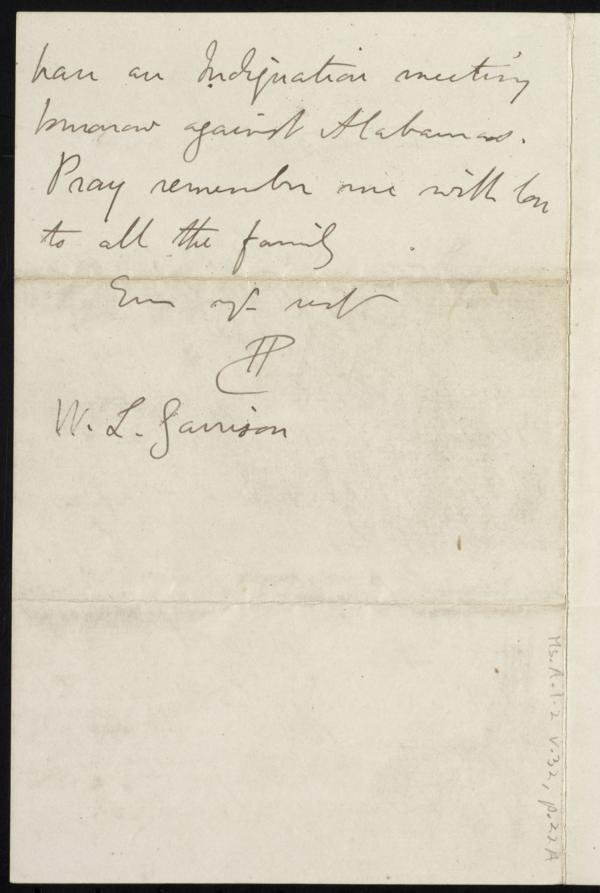 have an Indignation meeting
tomorrow against Alabamas.
Pray remember me with love
to all the family
W. L. Garrison
Ms. A. 1. 2 v. 32, p. 22A